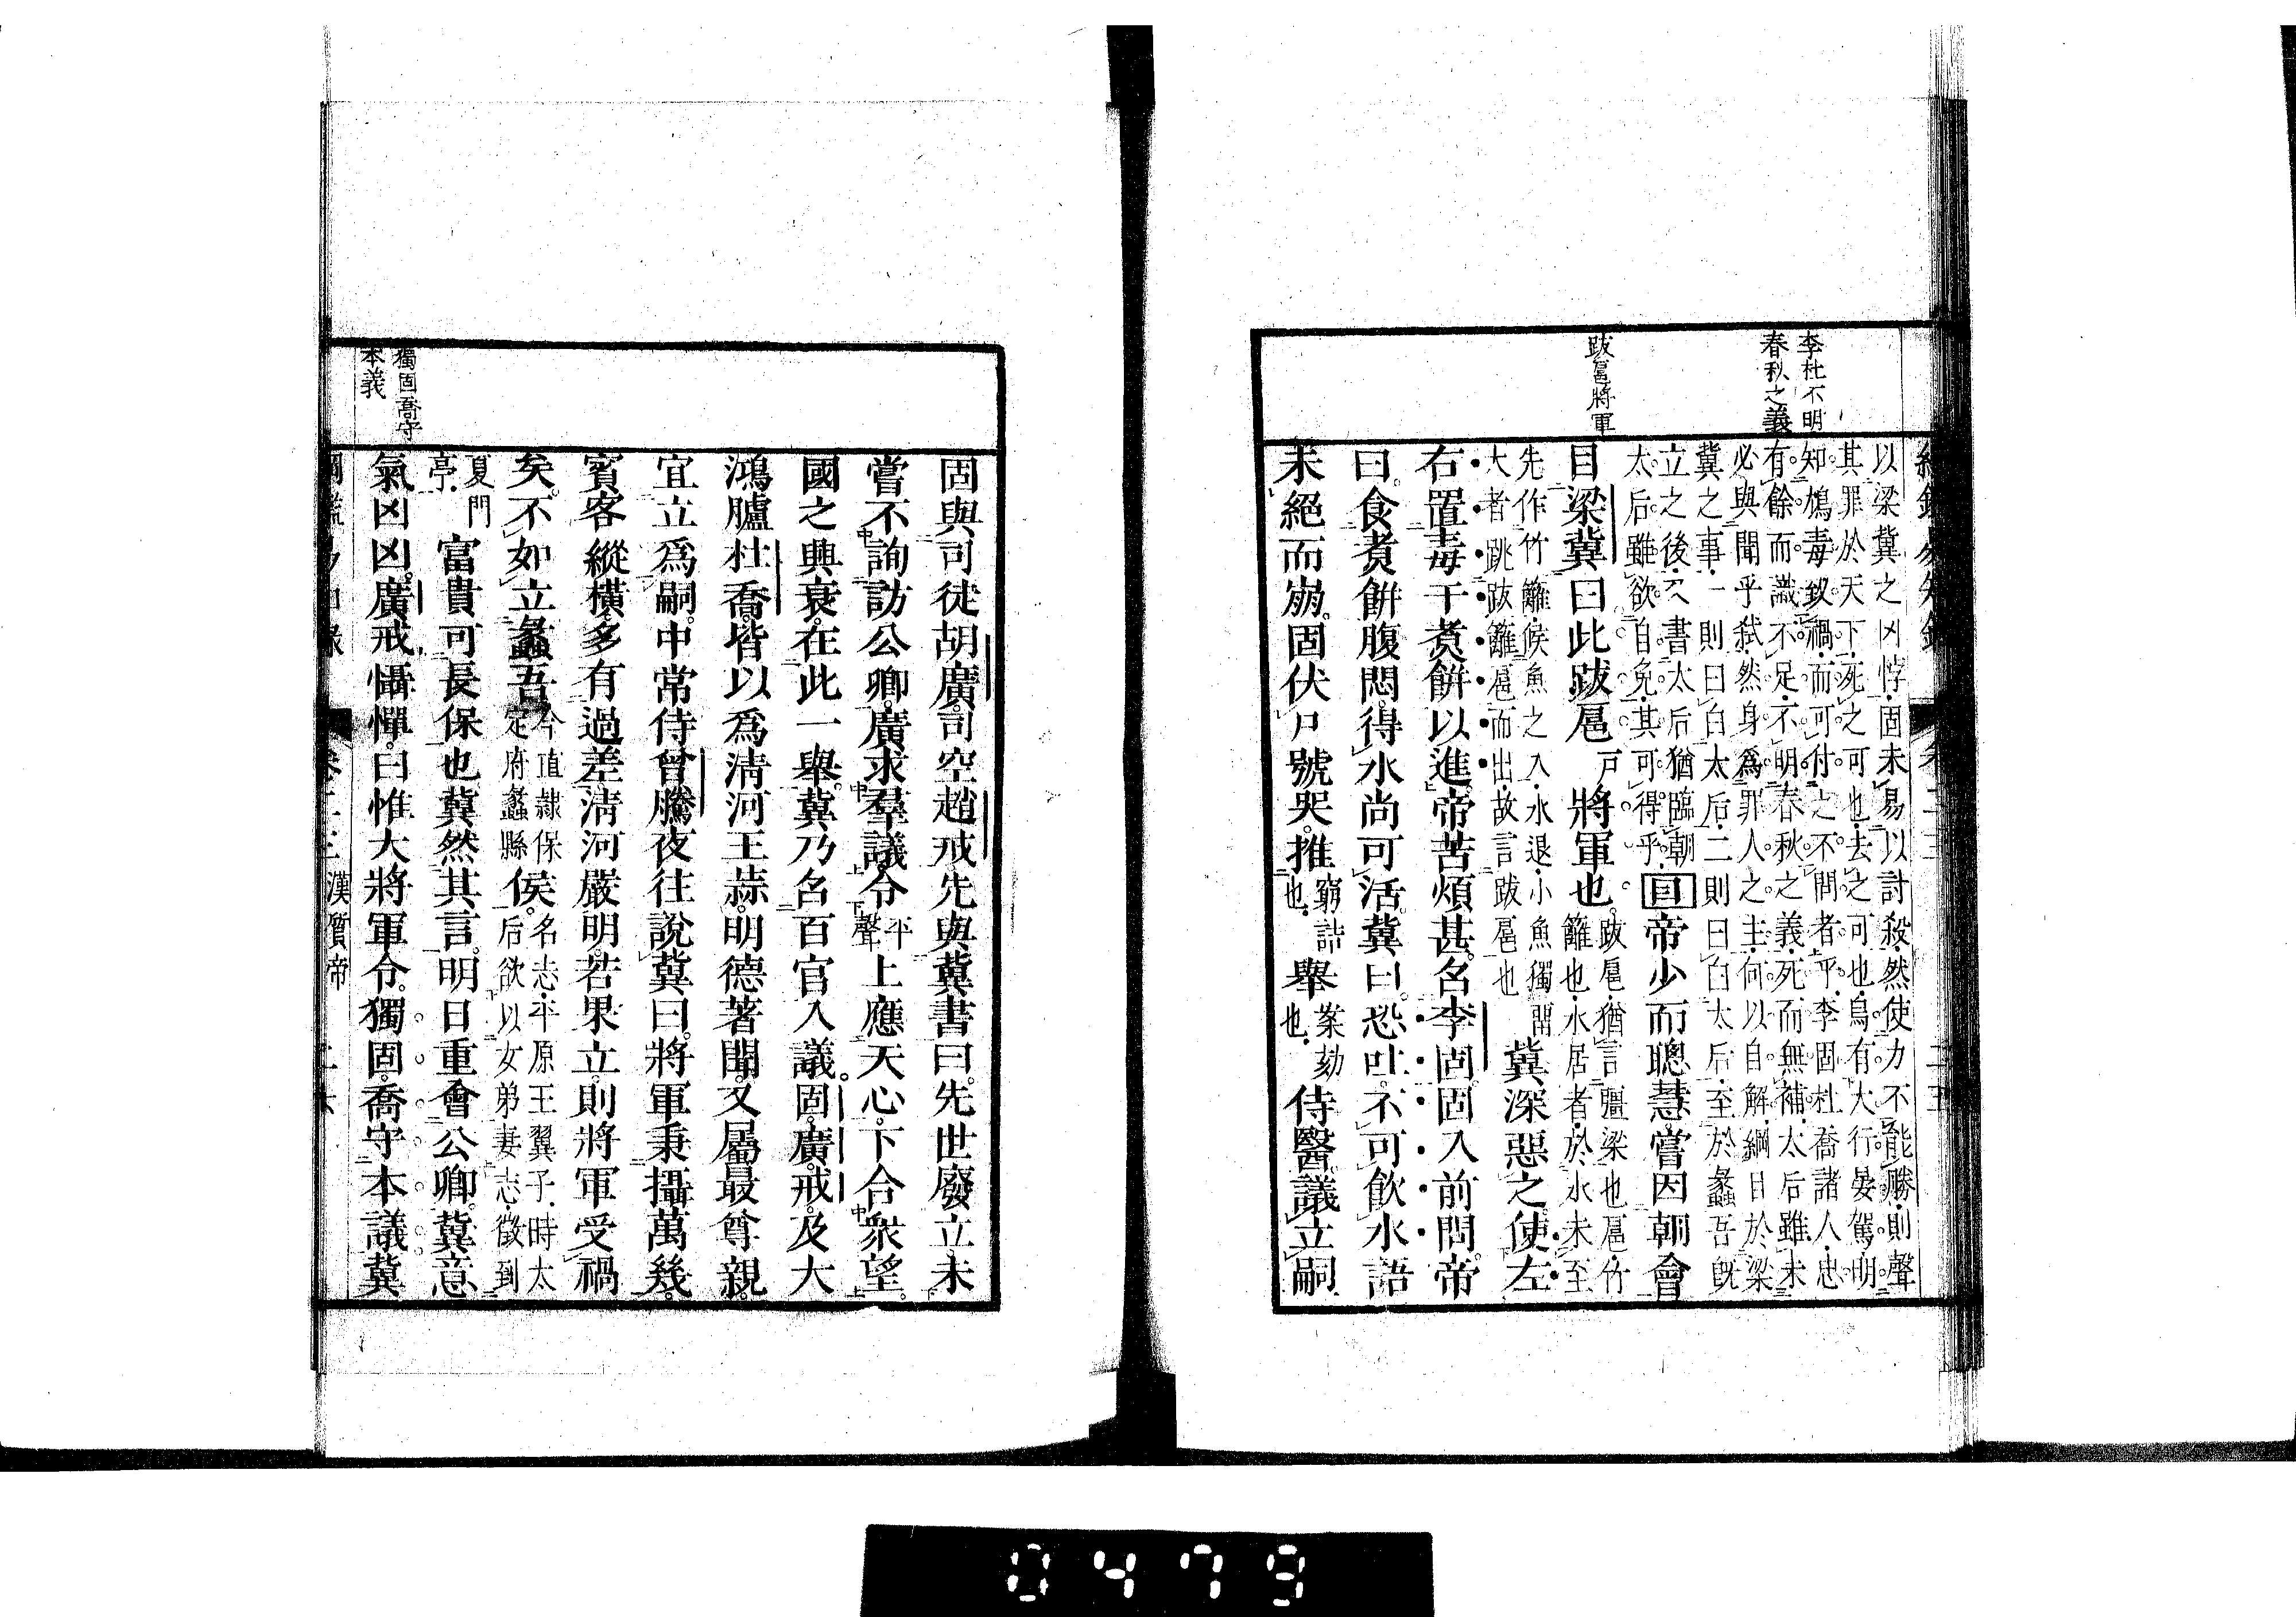 李杜不明
春秋之義
跋扈將軍
以梁冀之凶悖固未易以討殺然使力不能勝則聲
其罪於天下死之可也去之可也烏有大行晏駕明
知鴆毒致禍而可付之不問者乎李固杜喬諸人忠
有餘而識不足不明春秋之義死而無補太后雖未
必與聞乎弒然身爲罪人之主何以自解綱目於梁
冀之事一則曰白太后二則曰白太后至於蠡吾旣
立之後又書太后猶臨朝
太后雖欲自免其可得乎
目帝少而聰慧嘗因朝會
目梁冀曰此跋扈戶將軍也。跋扈猶言彊梁也扈竹
籬也水居者於水未至
先作竹籬候魚之入水退小魚獨留
大者跳跋籬扈而出故言跋扈也
冀深惡之使左
右置毒于煑餅以進帝苦煩甚。召李固固入前問。帝
曰。食煑餅腹悶。得水尚可活。冀曰。恐吐。不可飲水語
未絕而崩。固伏尸號哭。推窮詰也舉案劾也侍醫議立嗣
固與司徒胡廣。司空趙戒先與冀書曰。先世廢立未
嘗不詢訪公卿。廣求羣議。令平聲上應天心。下合衆望。
國之興衰。在此一舉。冀乃召百官入議。固。廣。戒。及大
鴻臚杜喬。皆以爲清河王蒜。明德著聞。又屬最尊親。
宜立爲嗣。中常侍曾騰夜往說冀曰。將軍秉攝萬幾。
賓客縱橫。多有過差。清河嚴明。若果立。則將軍受禍
矣。不如立蠡吾今直隸保定府蠡縣侯。名志平原王翼子時太
后欲以女弟妻志徵到
夏門亭富貴可長保也。冀然其言。明日重會公卿。冀意
氣凶凶。廣戒懾憚。曰惟大將軍令。獨固。喬守本議。冀
獨固喬守
本義
綱鑑易知錄 卷二十三 漢質帝 二十六
0479